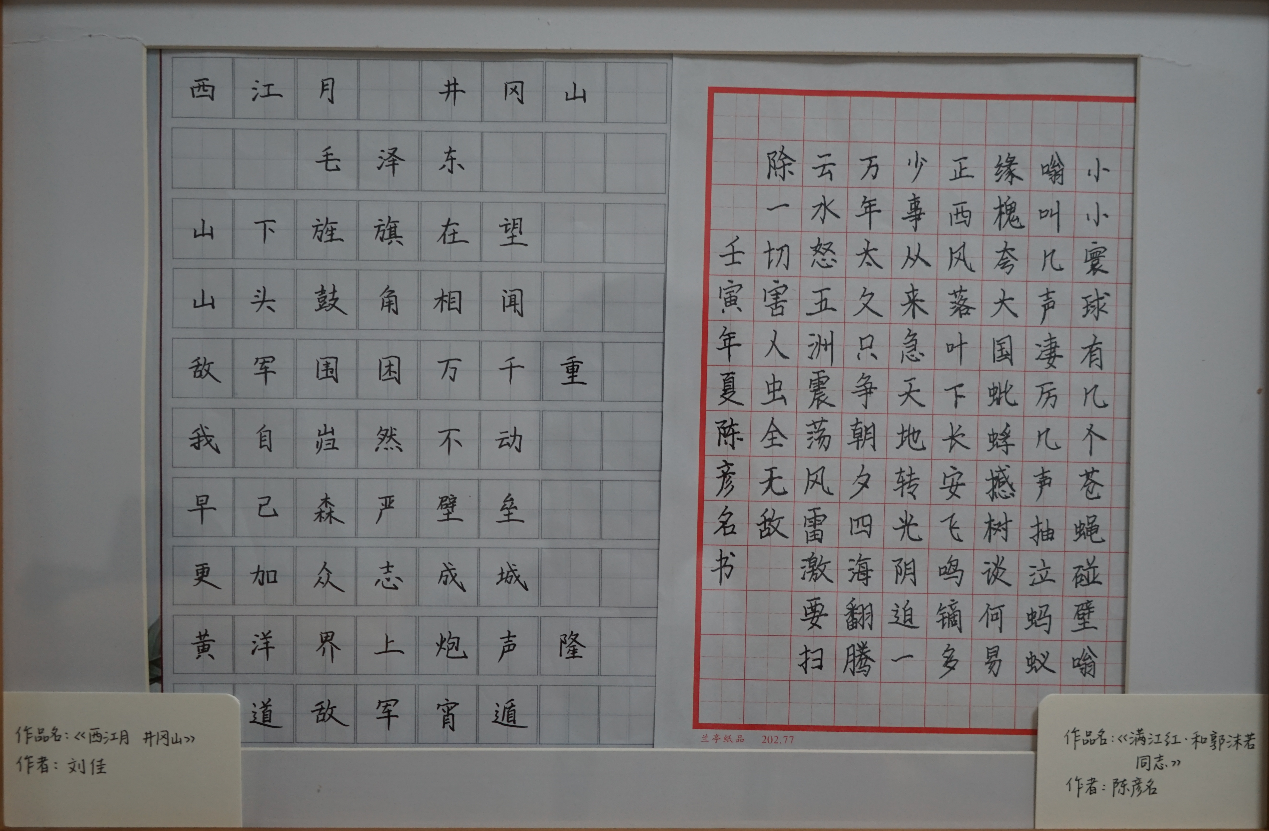 西江月 井冈山
毛泽东
山下旌旗在望
山头鼓角相闻
敌军围困万千重
我自岿然不动
早已森严壁垒
更加众志成城
黄洋界上炮声隆
道敌军宵遁
作品名:《西江月 井冈山》
作者:刘佳
小小寰球有几个苍蝇碰壁嗡
嗡叫几声凄厉几声抽泣蚂蚁
缘槐夸大国蚍蜉撼树谈何易
正西风落叶下长安飞鸣镝多
少事从来急天地转光阴迫一
万年太久只争朝夕四海翻腾
云水怒五洲震荡风雷激要扫
除一切害人虫全无敌
壬寅年夏陈彦名书
兰亭纸品 202.77
作品名:《满江红·和郭沫若
同志》
作者:陈彦名